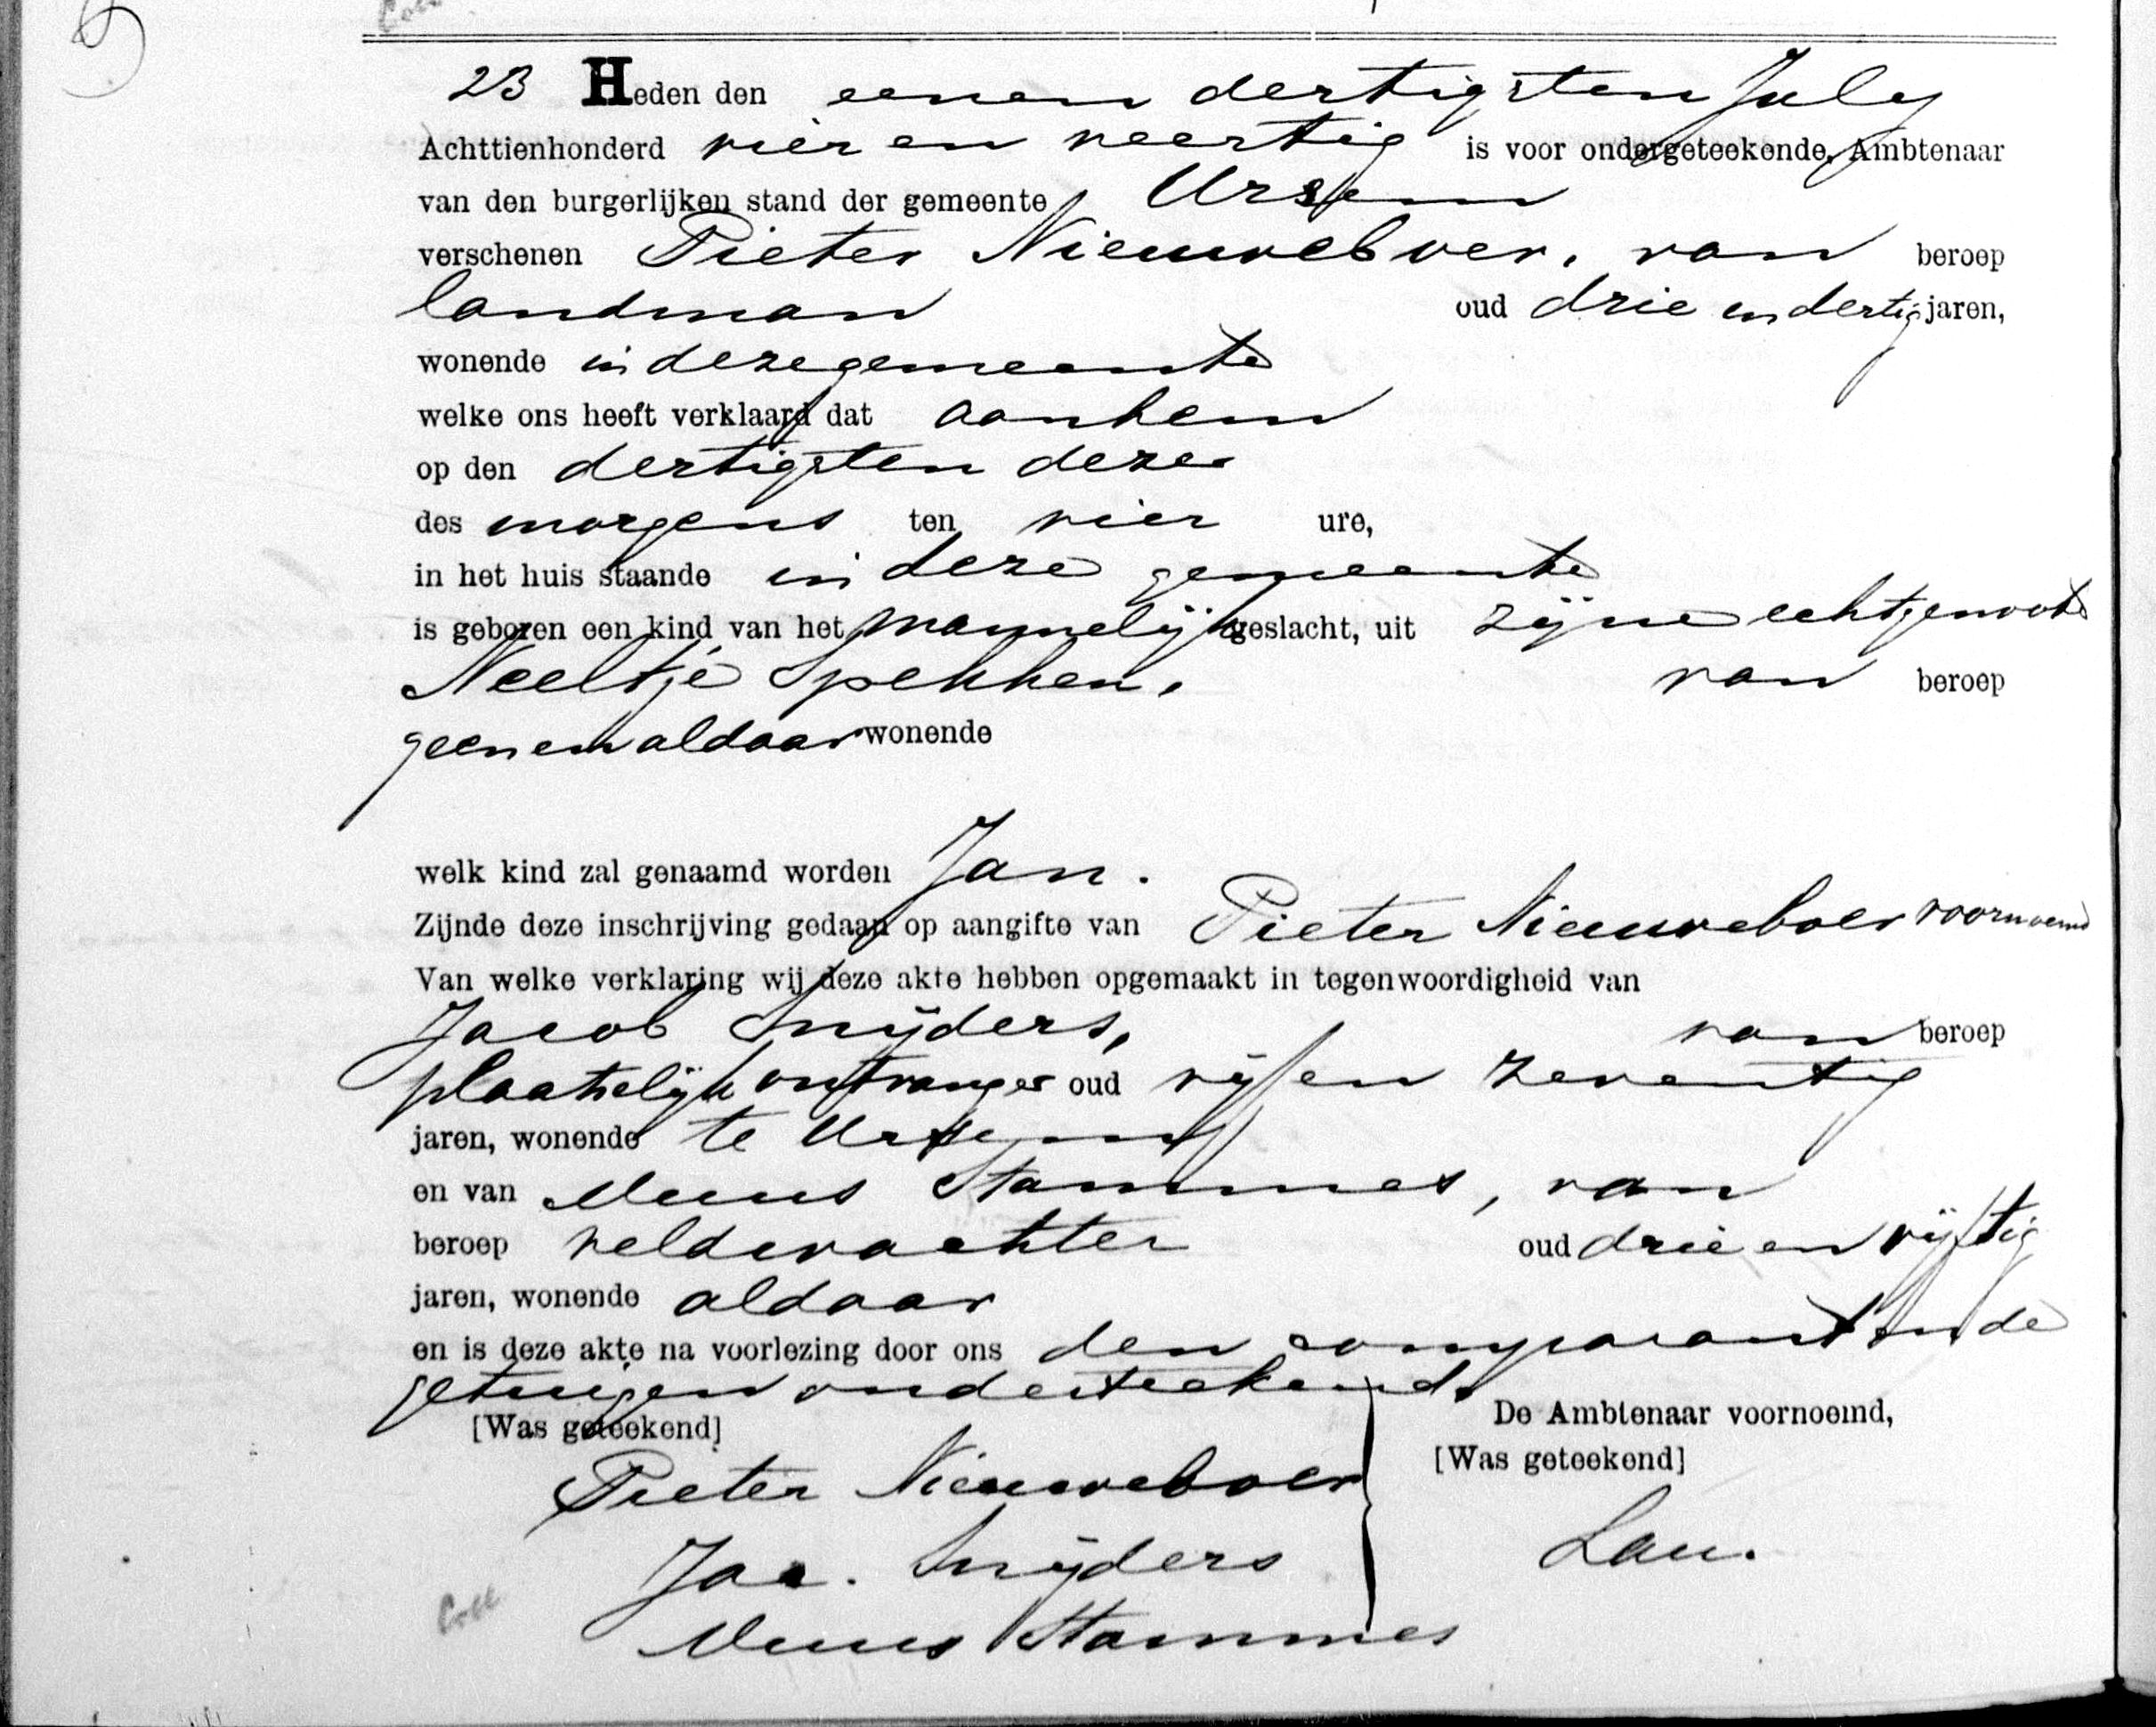 Coll
23 Heden den eenen dertigsten July
Achttienhonderd vier en veertig is voor ondergeteekende, Ambtenaar
van den burgerlijken stand der gemeente Ursem
verschenen Pieter Nieuweboer, van beroep
landman oud drie en dertig jaren,
wonende in deze gemeente
welke ons heeft verklaard dat aan hem
op den dertigsten dezer
des morgens ten vier ure,
in het huis staande in deze gemeente
is geboren een kind van het mannelijk geslacht, uit zijne echtgenoote
Neeltje Spekken, van beroep
geen en aldaar wonende
welk kind zal genaamd worden Jan.
Zijnde deze inschrijving gedaan op aangifte van Pieter Nieuweboer voornoemd
Van welke verklaring wij deze akte hebben opgemaakt in tegenwoordigheid van
Jacob Snijders, van beroep
plaatselijk ontvanger oud vijf en zeventig
jaren, wonende te Ursem
en van Muus Stammes, van
beroep veldwachter oud drie en vijftig
jaren, wonende aldaar
en is deze akte na voorlezing door ons den comparant en de
getuigen onderteekend.
[Was geteekend] De Ambtenaar voornoemd,
[Was geteekend]
Pieter Nieuweboer
Jac. Snijders Lau.
Muus Stammes
Coll